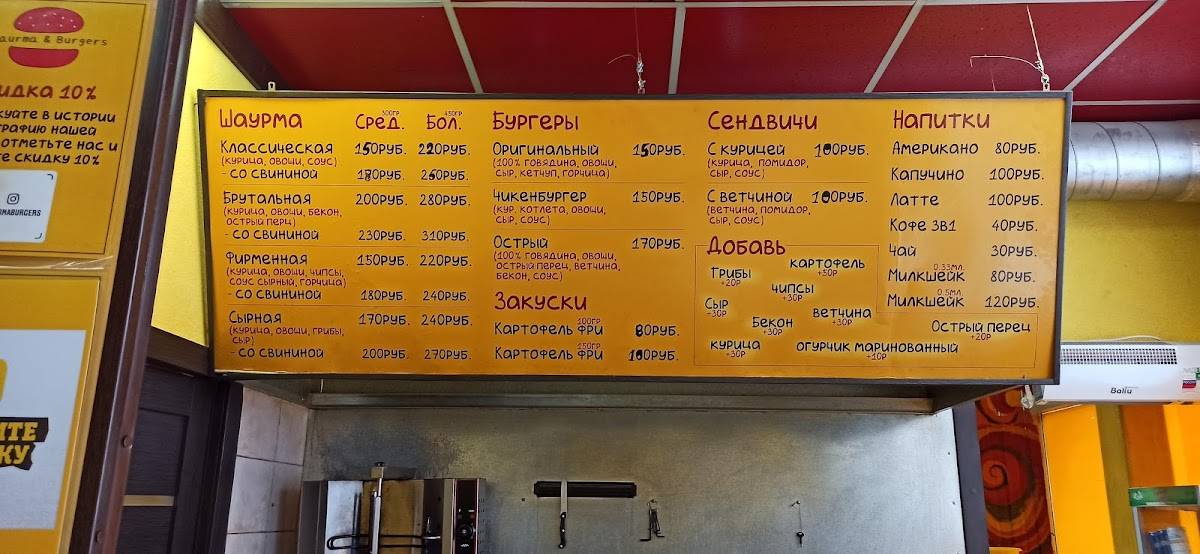 aurma & Burgers
идка 10%
куйте в истории
графию нашей
отметьте нас и
те скидку 10%
RMABURGERS
ИТЕ
КУ
Шаурма Сред. 300гр Бол. 450гр
Классическая 150руб. 220руб.
(курица, овощи, соус)
- со свининой 180руб. 250руб.
Брутальная 200руб. 280руб.
(курица, овощи, бекон,
острый перц)
- со свининой 230руб. 310руб.
Фирменная 150руб. 220руб.
(курица, овощи, чипсы,
соус сырный, горчица)
- со свининой 180руб. 240руб.
Сырная 170руб. 240руб.
(курица, овощи, грибы,
сыр)
- со свининой 200руб. 270руб.
Бургеры
Оригинальный 150руб.
(100% говядина, овощи,
сыр, кетчуп, горчица)
Чикенбургер 150руб.
(кур. котлета, овощи,
сыр, соус)
Острый 170руб.
(100% говядина, овощи,
острый перец, ветчина,
бекон, соус)
Закуски
Картофель фри 100гр 80руб.
Картофель фри 150гр 100руб.
Сендвичи
С курицей 100руб.
(курица, помидор,
сыр, соус)
С ветчиной 100руб.
(ветчина, помидор,
сыр, соус)
Добавь
Грибы +20р
картофель +50р
чипсы +30р
Сыр +30р
ветчина +30р
Бекон +30р
курица +30р
огурчик маринованный +10р
Острый перец +20р
Напитки
Американо 80руб.
Капучино 100руб.
Латте 100руб.
Кофе 3в1 40руб.
Чай 30руб.
Милкшейк 0.33мл. 80руб.
Милкшейк 0.5мл. 120руб.
Ballu